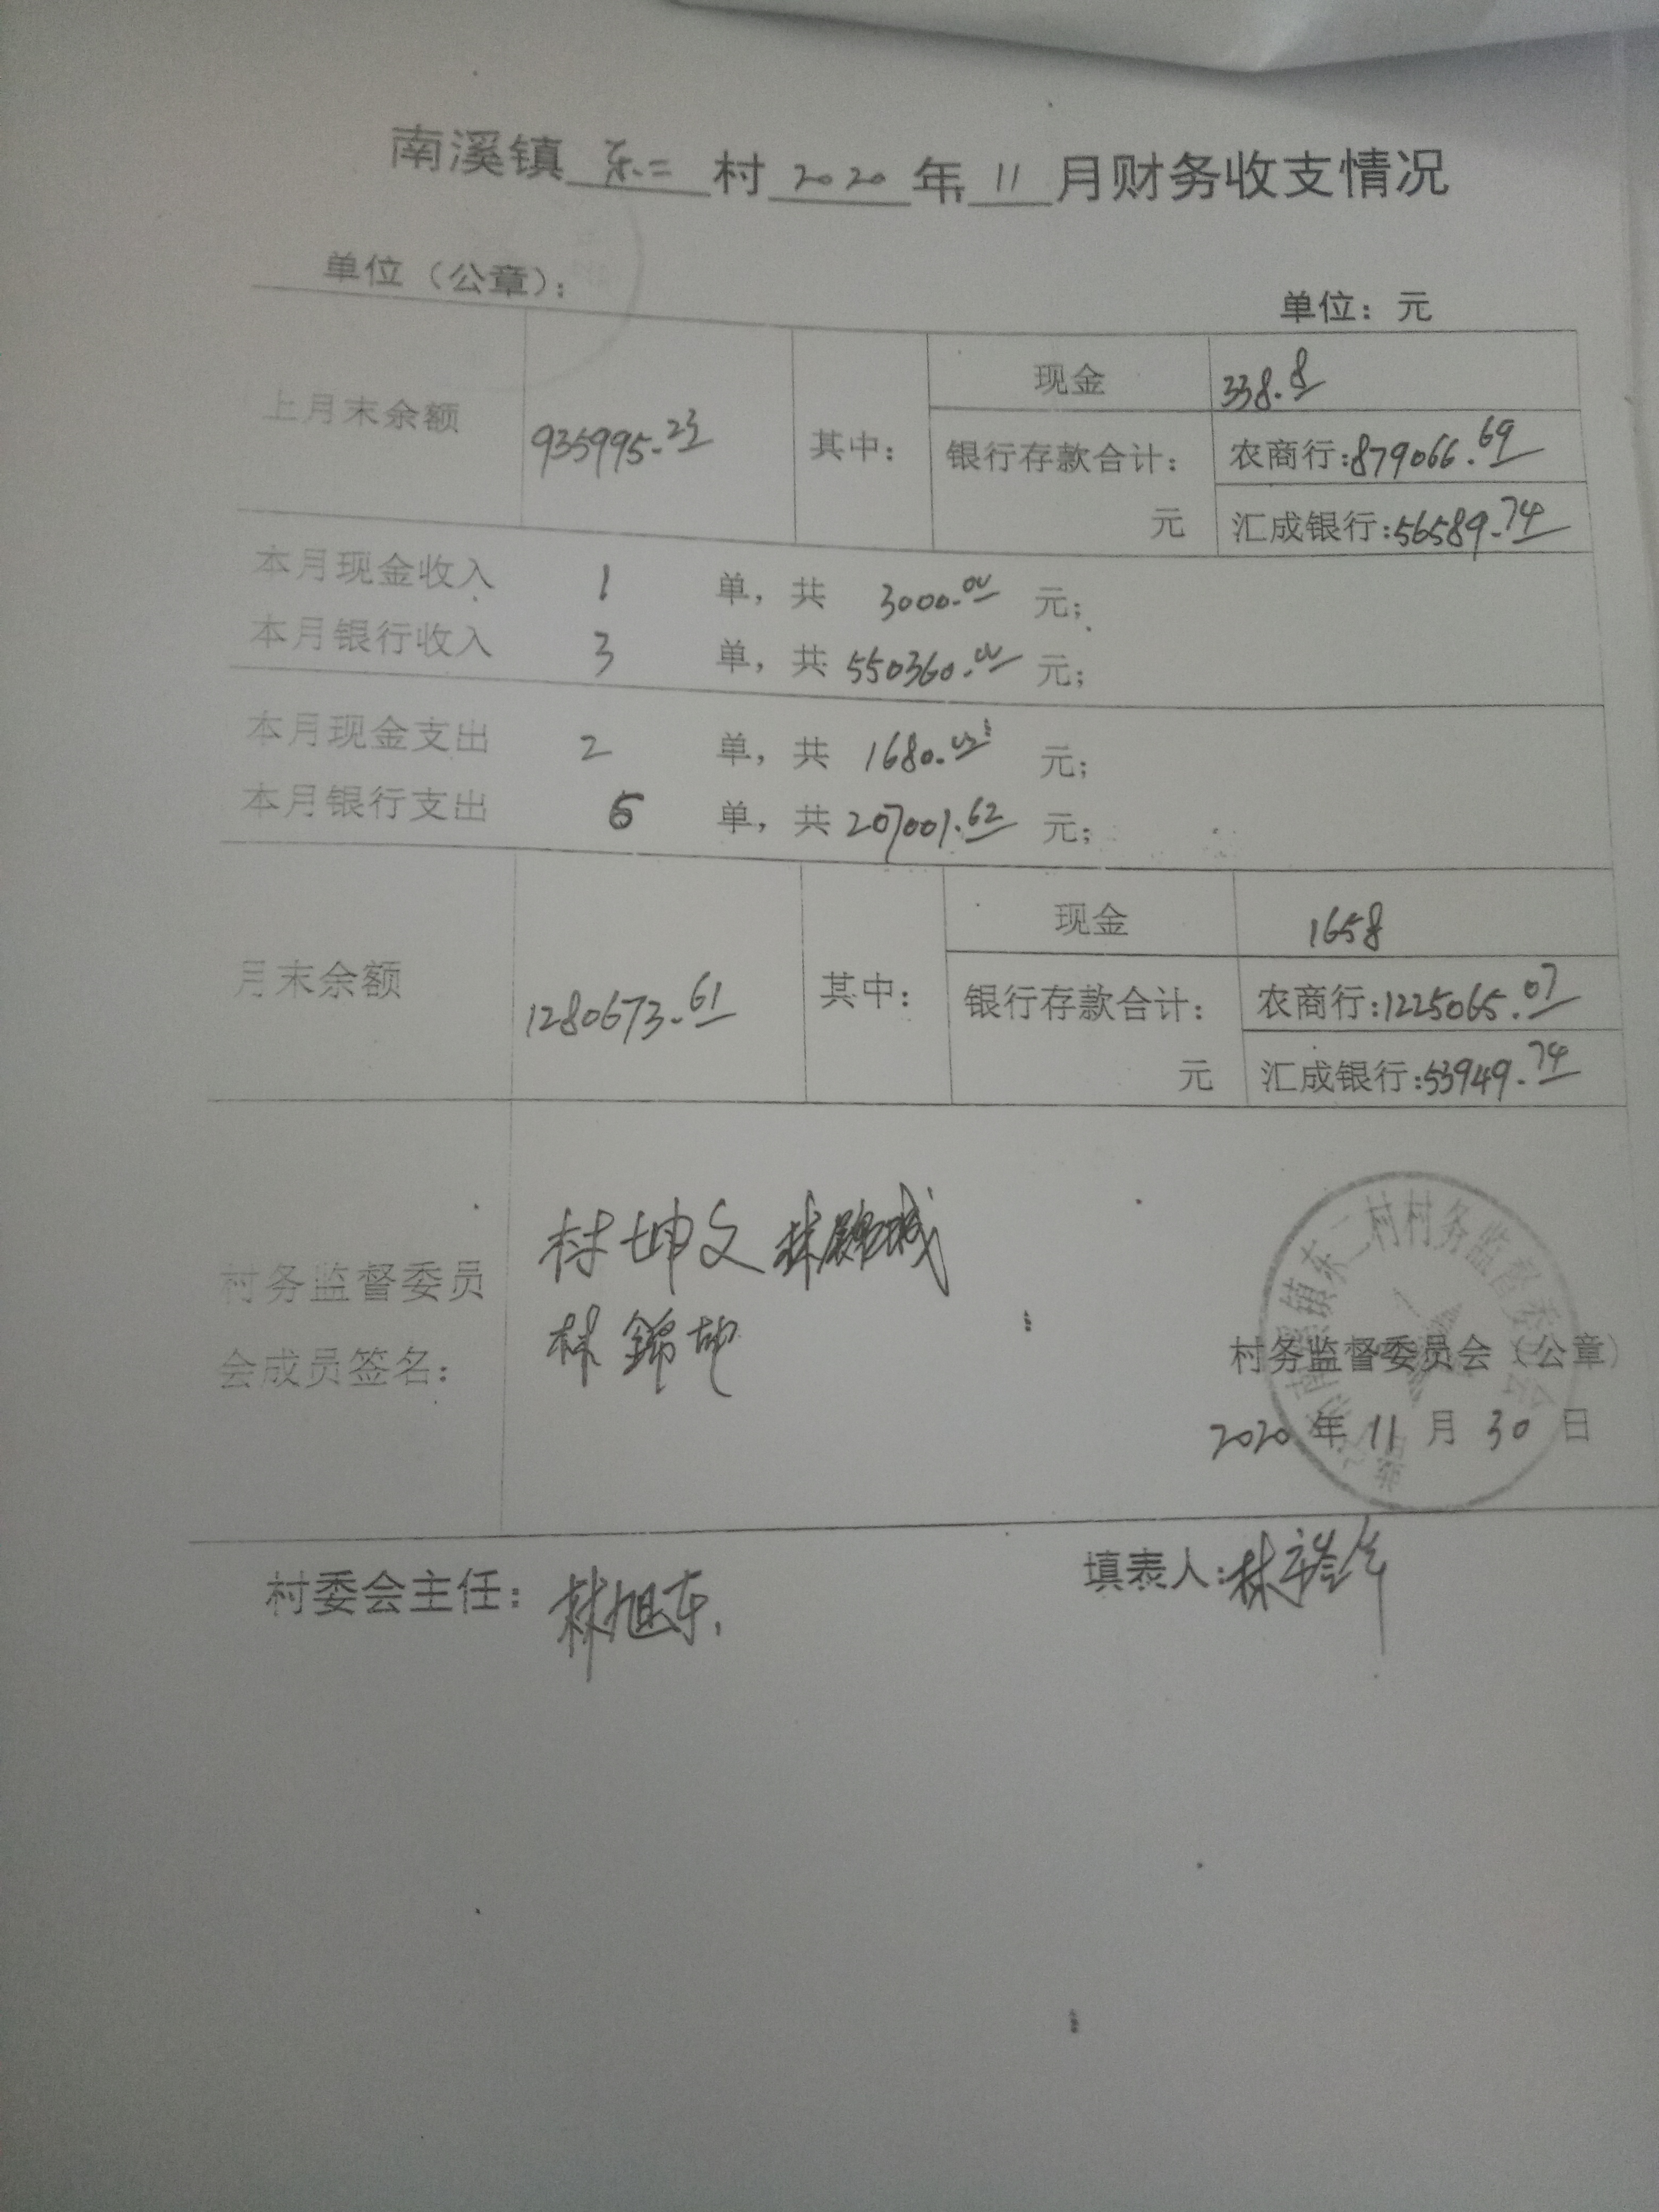 南溪镇东二村2020年11月财务收支情况
单位（公章）：
单位：元
上月末余额 935995.23 其中： 现金 338.8
银行存款合计： 元 农商行：879066.69
汇成银行：56589.74
本月现金收入 1 单，共 3000.00 元；
本月银行收入 3 单，共 550360.00 元；
本月现金支出 2 单，共 1680. 元；
本月银行支出 6 单，共 207001.62 元；
月末余额 1280673.61 其中： 现金 1658
银行存款合计： 元 农商行：1225065.07
汇成银行：53949.74
村务监督委员会成员签名：
林坤文 林
林錦坤
南溪镇东二村村务监督委员会
村务监督委员会（公章）
2020年11月30日
村委会主任：林旭东
填表人：林